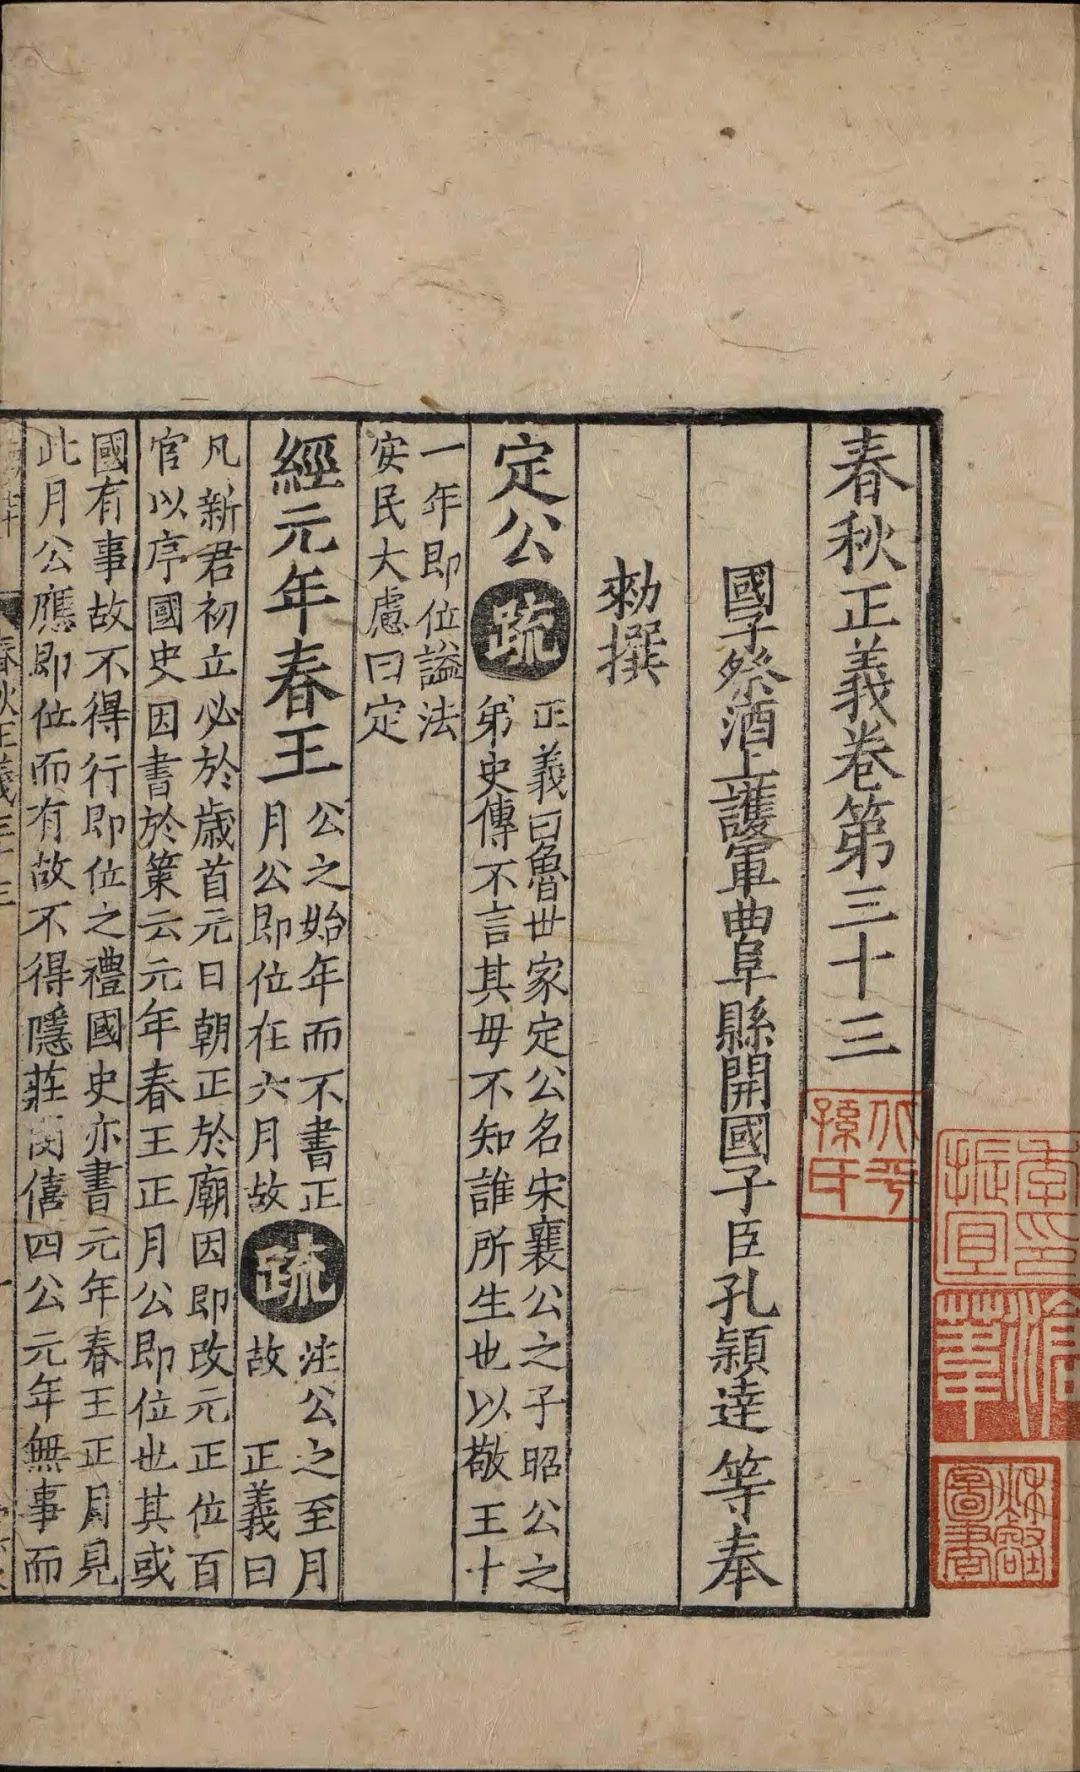 春秋正義卷第三十三
國子祭酒上護軍曲阜縣開國子臣孔穎達等奉
勑撰
定公
疏
正義曰魯世家定公名宋襄公之子昭公之
弟史傳不言其毋不知誰所生也以敬王十
一年即位謚法
安民大慮曰定
經元年春王
公之始年而不書正
月公即位在六月故
疏
注公之至月
故 正義曰
凡新君初立必於歲首元日朝正於廟因即改元正位百
官以序國史因書於策云元年春王正月公即位也其或
國有事故不得行即位之禮國史亦書元年春王正月見
此月公應即位而有故不得隱莊閔僖四公元年無事而
春秋正義三十三
孫氏
季振宜印
滄葦
圖書